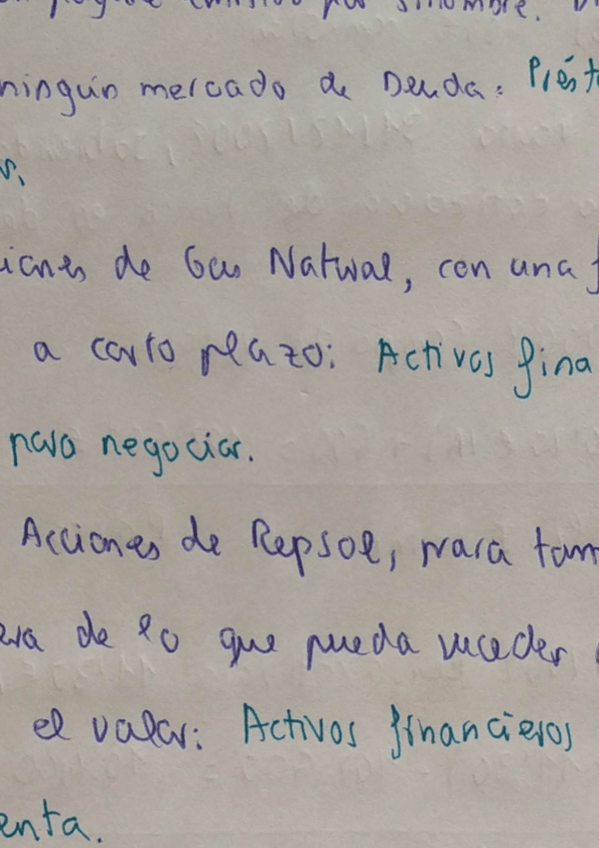 por sinombre.
ningún mercado de Deuda: Présta
s,
iones de Gas Natural, con una f
a corto plazo: Activos fina
para negociar.
Acciones de Repsol, para tom
era de lo que pueda suceder
el valor: Activos financieros
enta.